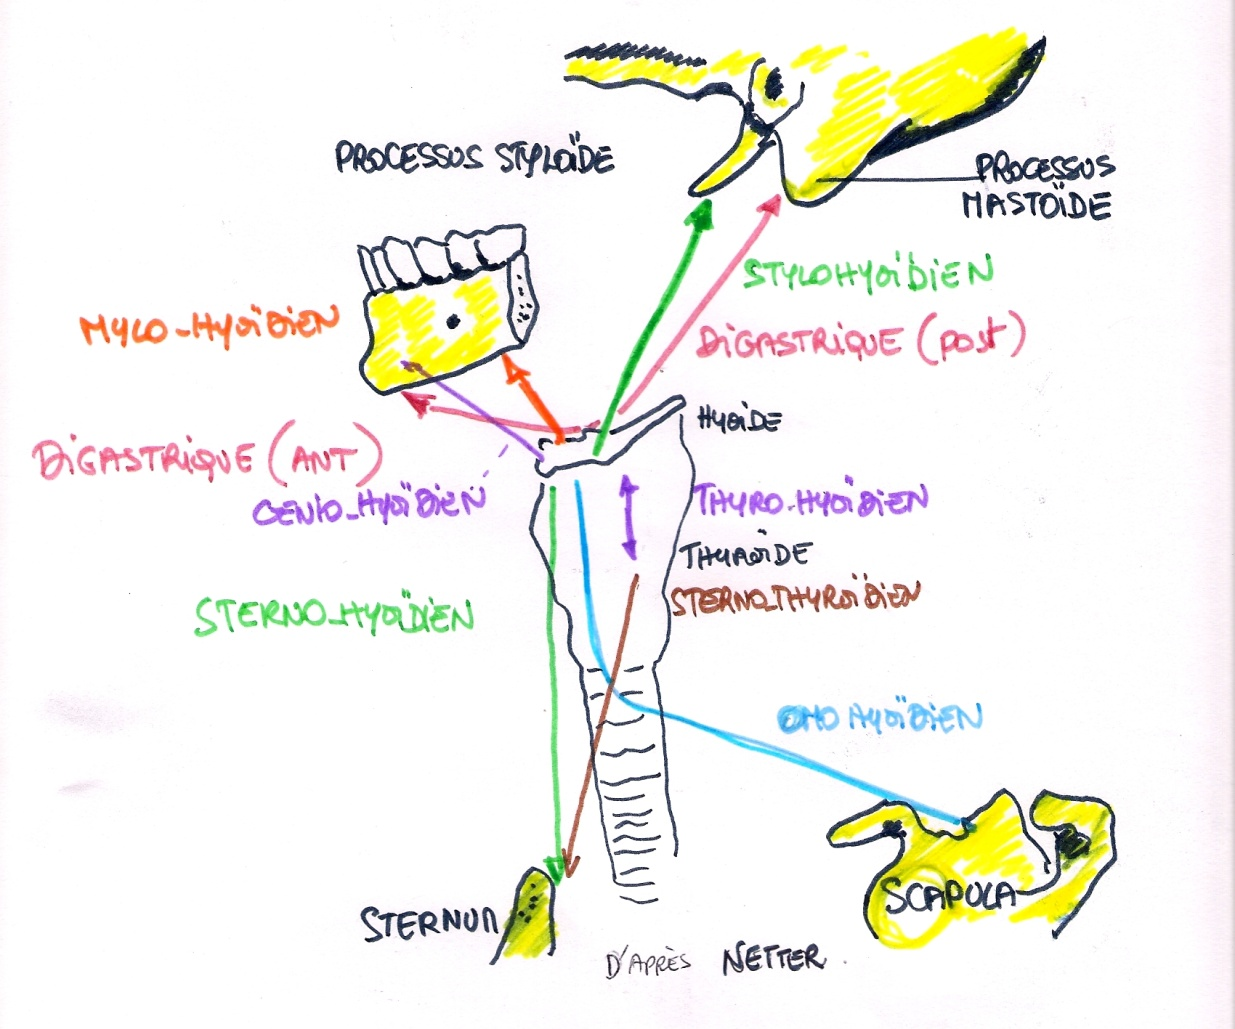 PROCESSUS STYLOÏDE
PROCESSUS
MASTOÏDE
STYLOHYOÏDIEN
MYLO-HYOÏDIEN
DIGASTRIQUE (POST)
HYOÏDE
DIGASTRIQUE (ANT)
GENIO-HYOÏDIEN
THYRO-HYOÏDIEN
THYROÏDE
STERNO-THYROÏDIEN
STERNO-HYOÏDIEN
OMO HYOÏDIEN
SCAPULA
STERNUM
D'APRÈS NETTER.